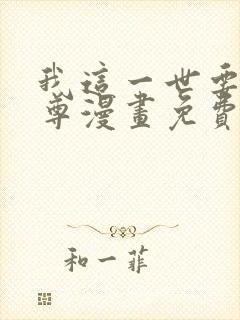 我這一世要
尊漫畫免費
和一菲